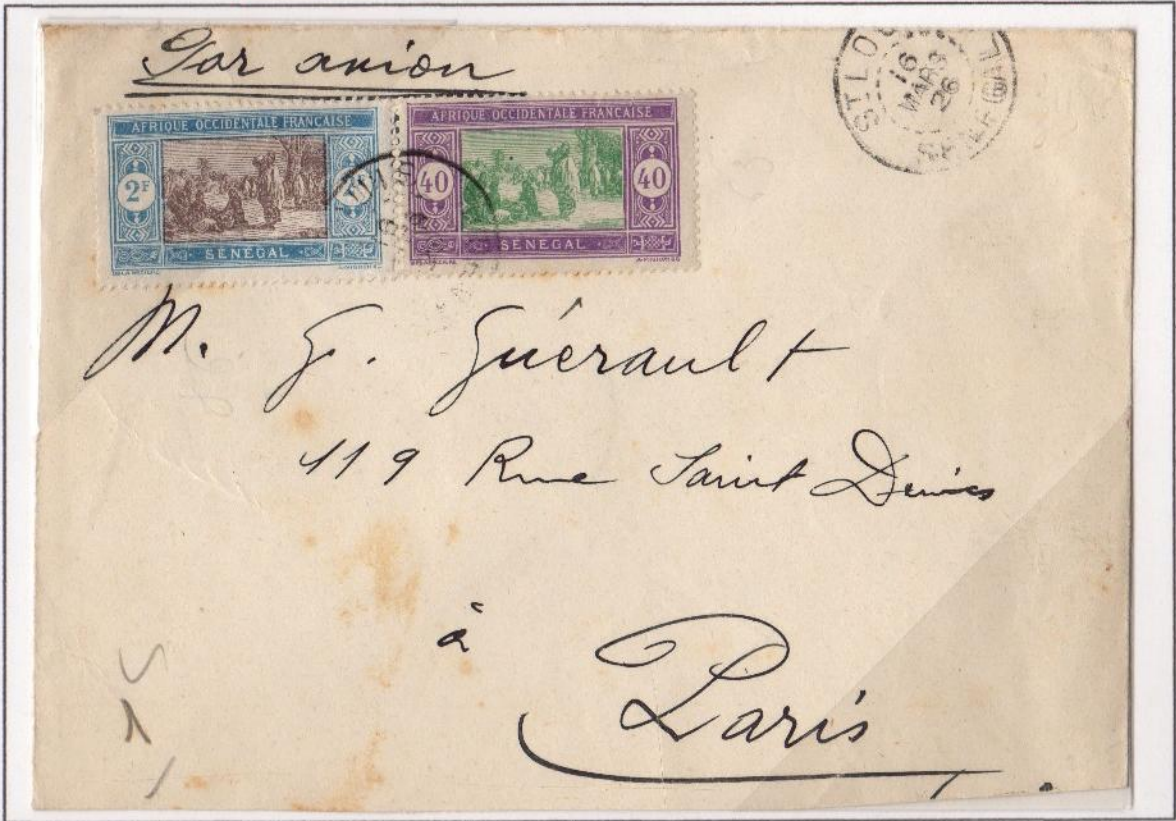 Par avion
ST LO
16
MARS
26
AFRIQUE OCCIDENTALE FRANÇAISE
2F
SÉNÉGAL
AFRIQUE OCCIDENTALE FRANÇAISE
40 40
SÉNÉGAL
M. G. Guérault
119 Rue Saint Denis
à
Paris